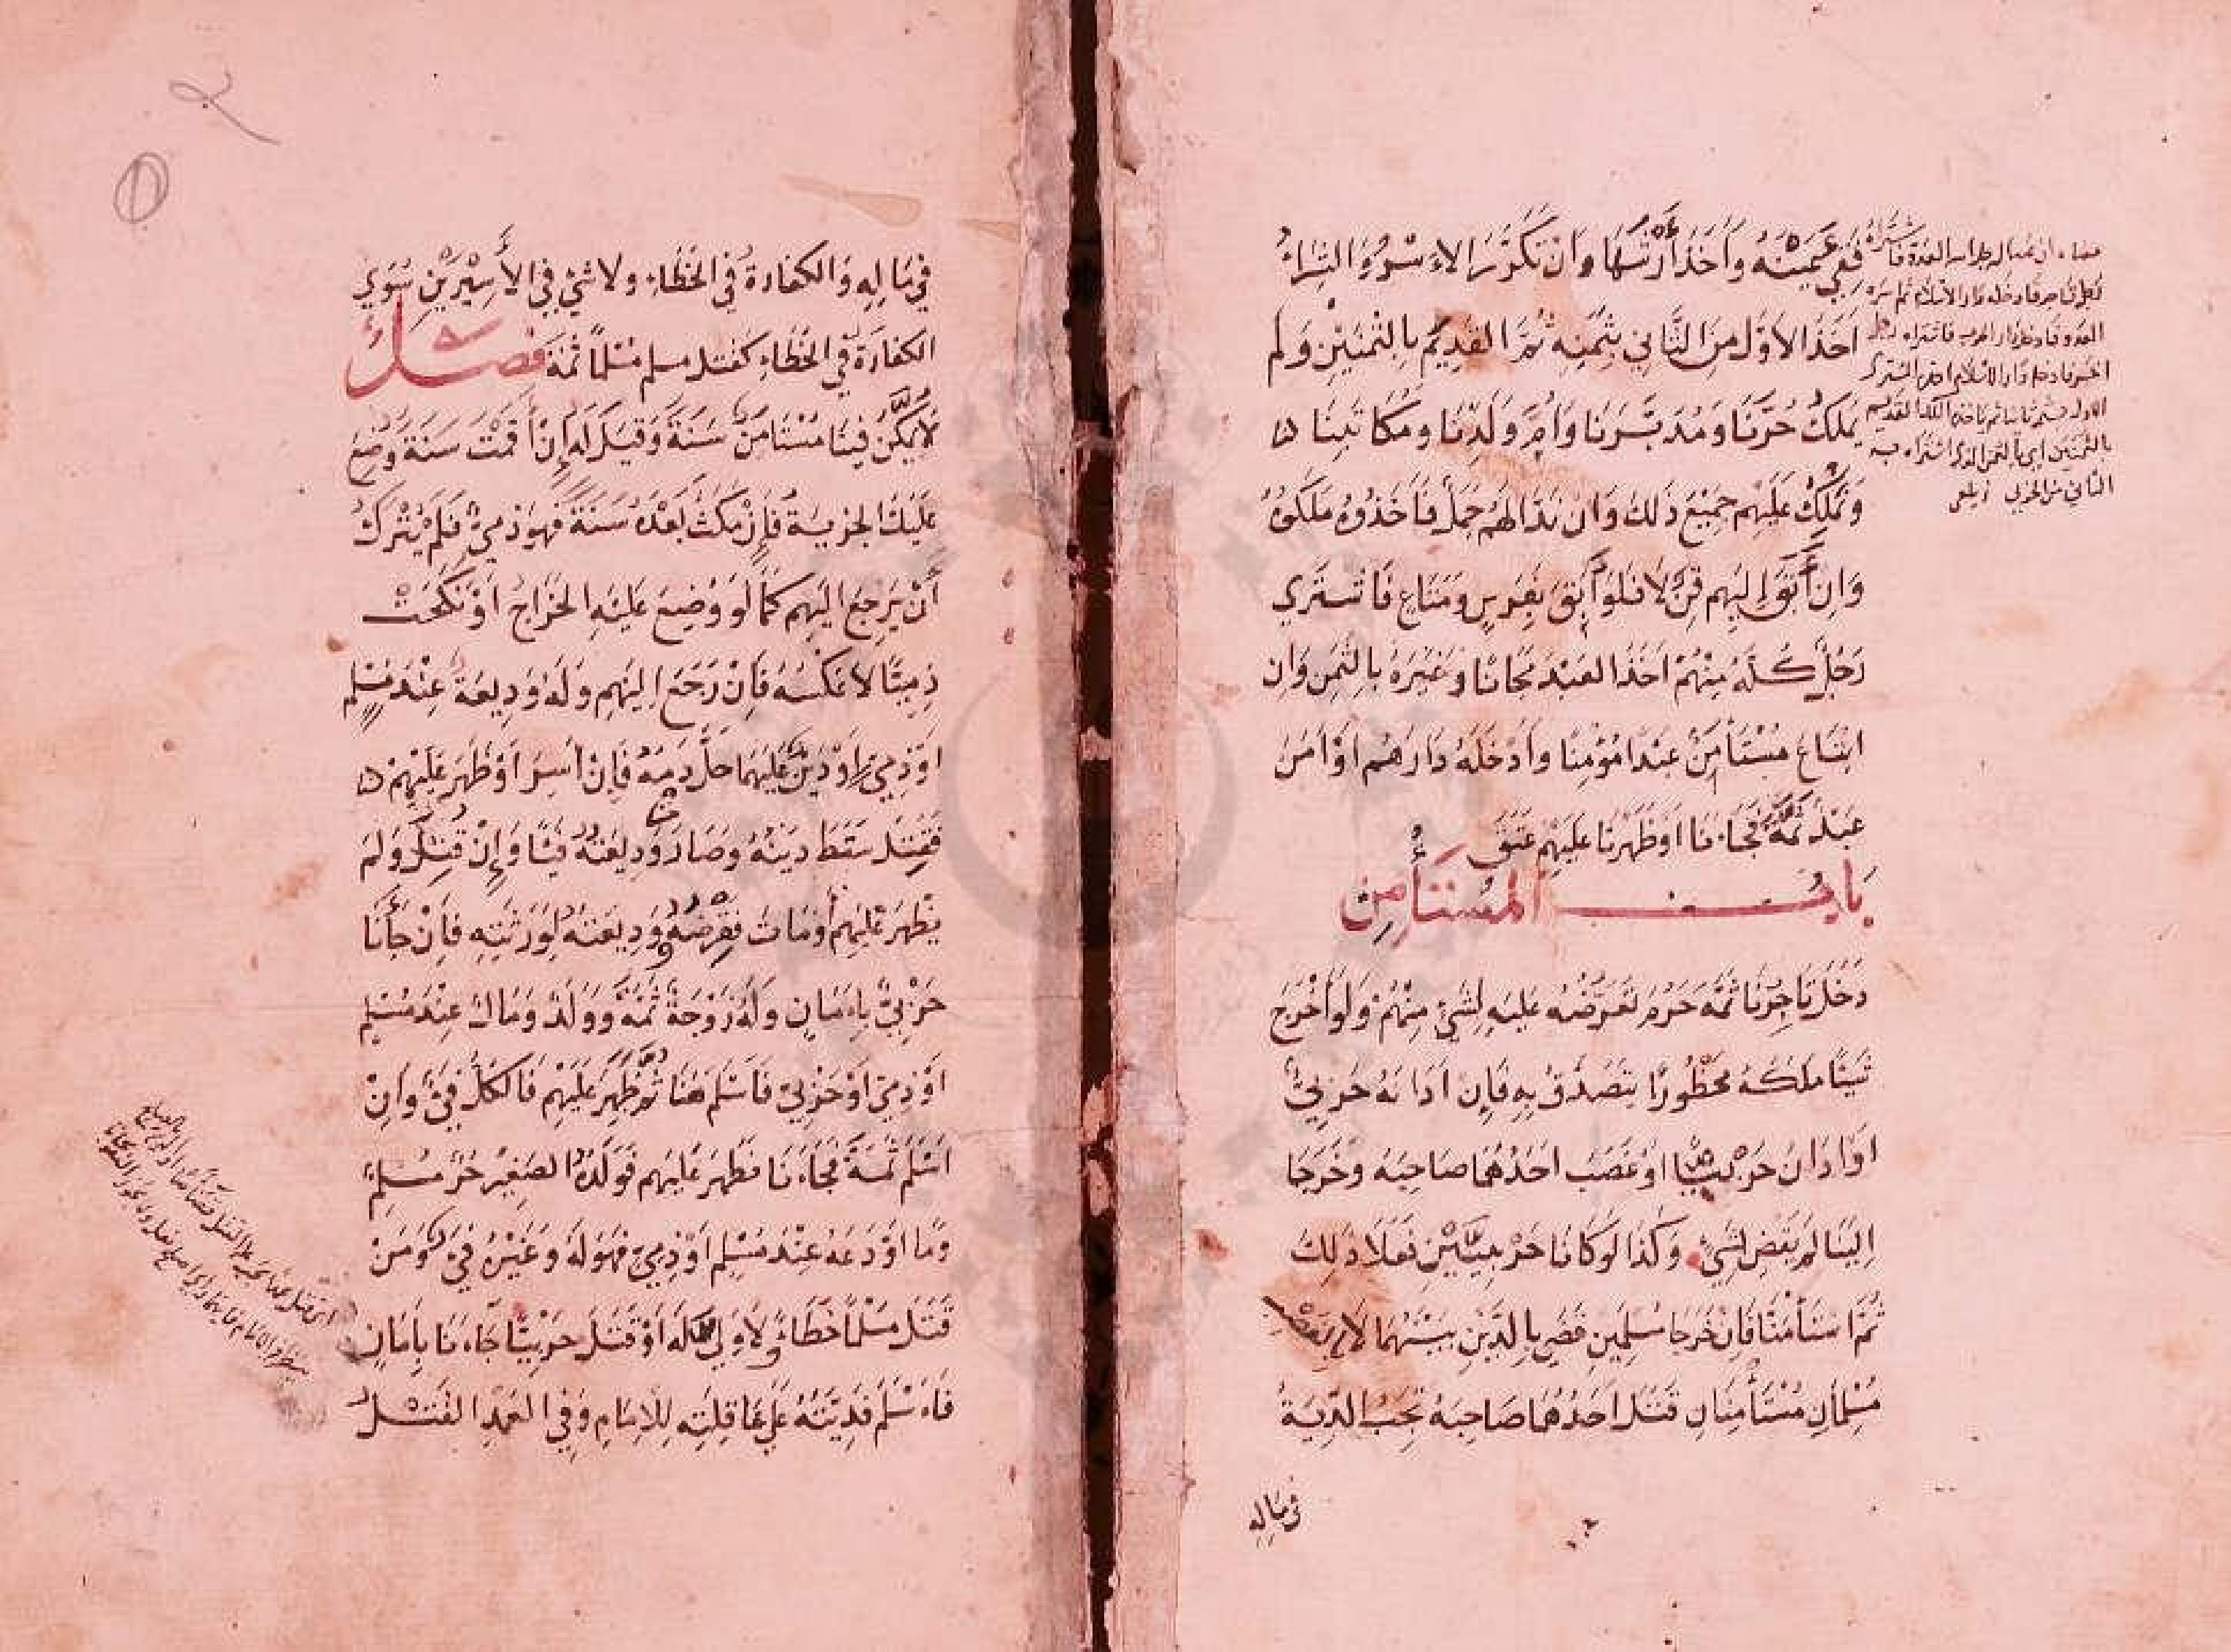 فَفِي عَيْنِهِ وَأَخَذَ أَرْشَهَا وَانْ تَكَرَّرَ الاسْرُ وَالشِّرَاءُ
اَخَذَ الاَوَّلُ مِنَ الثَّانِي بِثَمَنِهِ ثُمَّ القَدِيمُ بِالثَّمَنَيْنِ وَلَم
يَملكُوا حُرَّنَا وَمُدَبَّرَنَا وَاُمَّ وَلَدِنَا وَمُكَاتَبِنَا
وَنَملِكُ عَلَيْهِم جَمِيْعَ ذَلكَ وَانْ نَدَّ الَيْهم جَمَلٌ فَاَخَذُوهُ مَلَكُوهُ
وَاِنْ أَبَقَ إِلَيْهِم قِنٌّ لَا فَلَوْ أَبَقَ بِفَرَسٍ وَمَتَاعٍ فَاشْتَرَي
رَجُلٌ كُلَّهُ مِنْهُمْ اَخَذَ العَبْدَ مَجَانًا وَغَيْرَهُ بِالثَّمَنِ وَاِن
ابْتَاعَ مُسْتَأْمِنٌ عَبْدًا مُؤْمِنًا وَاَدْخَلَهُ دَارَهُم اَوْ اٰمَنَ
عَبْدٌ ثَمَّةَ فَجَاءَنَا اَوْ ظَهَرْنَا عَلَيْهِمْ عَتَقَ
بَابُ المُسْتَأْمِنِ
دَخَلَ تَاجِرُنَا ثَمَّه حَرُمَ تَعَرُّضُه عَلَيهِ لِشَيْ مِنْهُمْ وَلَو أَخْرَجَ
شَيْئًا مَلَكَهُ مَحْظُورًا يتَصَدَّقُ بِهِ فَاِن اَدَانَهُ حَرْبِيٌّ
اَوْ اَدَانَ حَرْبِيًّا اوْ غَصَبَ اَحَدُهُمَا صَاحِبَهُ وَخَرَجَا
اِلَيْنَا لَم يُقْضَ لشَيْءٍ وَكَذَا لَوْ كَانَا حَرْبِيَّيْنِ فَعَلَا ذَلِكَ
ثُمَّ اسْتَأْمَنَا فَاِنْ خَرَجَا مُسْلِمَيْنِ قُضِيَ بِالدَّيْنِ بَيْنَهُمَا لَا بِالغَصْبِ
مُسْلِمَانِ مُسْتَأْمِنَانِ قَتَلَ اَحَدُهُمَا صَاحِبَهُ تَجِبُ الدِّيَةُ
في مَالِه
فِي مَالِهِ وَالكَفَّارَةُ فِي الخَطَاءِ وَلَا شَيْ فِي الأَسِيْرَيْنِ سِوَي
الكَفَّارَةِ فِي الخَطَاءِ كَقَتلِ مسلم مُسْلِمًا ثَمَّهَ فَصْلٌ
لَا يُمَكَّنُ فِينَا مُسْتَامِنٌ سَنَةً وَقِيلَ لَه إِنْ أَقَمْتَ سَنَةً وُضِعَ
عَلَيْكَ الجِزْيَةُ فَإِنْ مَكَثَ بَعْدَهُ سَنَةً فَهُوَ ذِمِّيٌّ فَلَمْ يُتْرَكْ
أَنْ يَرجِعَ اِلَيْهِم كَمَا لَوْ وُضِعَ عَلَيْهِ الخَرَاجُ اوْ نَكَحَتْ
ذِمِيًّا لَا عَكْسُهُ فَاِنْ رَجَعَ اِلَيْهِم وَلَهُ وَدِيعَةٌ عِنْدَ مُسْلِمٍ
اَوْ ذِمِّيٍّ اَوْ دَيْنٌ عَلَيْهِمَا حَلَّ دَمُهُ فَاِنْ اُسِرَ اَوْ ظُهِرَ عَلَيْهِمْ
فَقُتِلَ سَقَطَ دَيْنُهُ وَصَارَ وَدِيعَتُهُ فَيْئًا وَاِنْ قُتِلَ وَلَم
يُظْهَرْ عَلَيْهِمْ أَوْ مَاتَ فَقَرْضُهُ وَوَدِيعَتُهُ لِوَرَثَتِهِ فَاِنْ جَاءَنَا
حَرْبِيٌّ بِاَمَانٍ وَلَهُ زَوْجَةٌ ثَمَّةَ وَوَلَدٌ وَمَالٌ عِنْدَ مُسْلِمٍ
اَوْ ذِمِّيٍّ اَوْ حَرْبِيٍّ فَاَسْلَمَ هُنَا ثُمَّ ظُهِرَ عَلَيْهِمْ فَالكُلُّ فَيْءٌ وَاِنْ
اَسْلَمَ ثَمَّةَ فَجَاءَنَا فَظُهِرَ عَلَيْهِم فَوَلَدُهُ الصَغِيْرُ حُرٌّ مُسْلِمٌ
وَمَا اَوْدَعَهُ عِنْدَ مُسْلِمٍ اَوْ ذِمِّيٍّ فَهُوَ لَهُ وَغَيْرُهُ فَيْءٌ وَمَنْ
قَتَلَ مُسْلِمًا خَطَاءً لَا وَلِيَّ لَهُ اَوْ قَتَلَ حَرْبِيًّا جَاءَنَا بِأَمَانٍ
فَاَسْلَمَ فَدِيَتُهُ عَلَي عَاقِلَتِهِ لِلاِمَامِ وَفِي العَمْدِ القَتْلُ